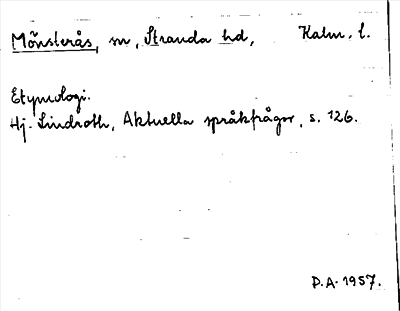 Mönsterås, sn, Stranda hd, Kalm. l.
Etymologi.
Hj. Lindroth, Aktuella språkfrågor, s. 126.
D.A. 1957.